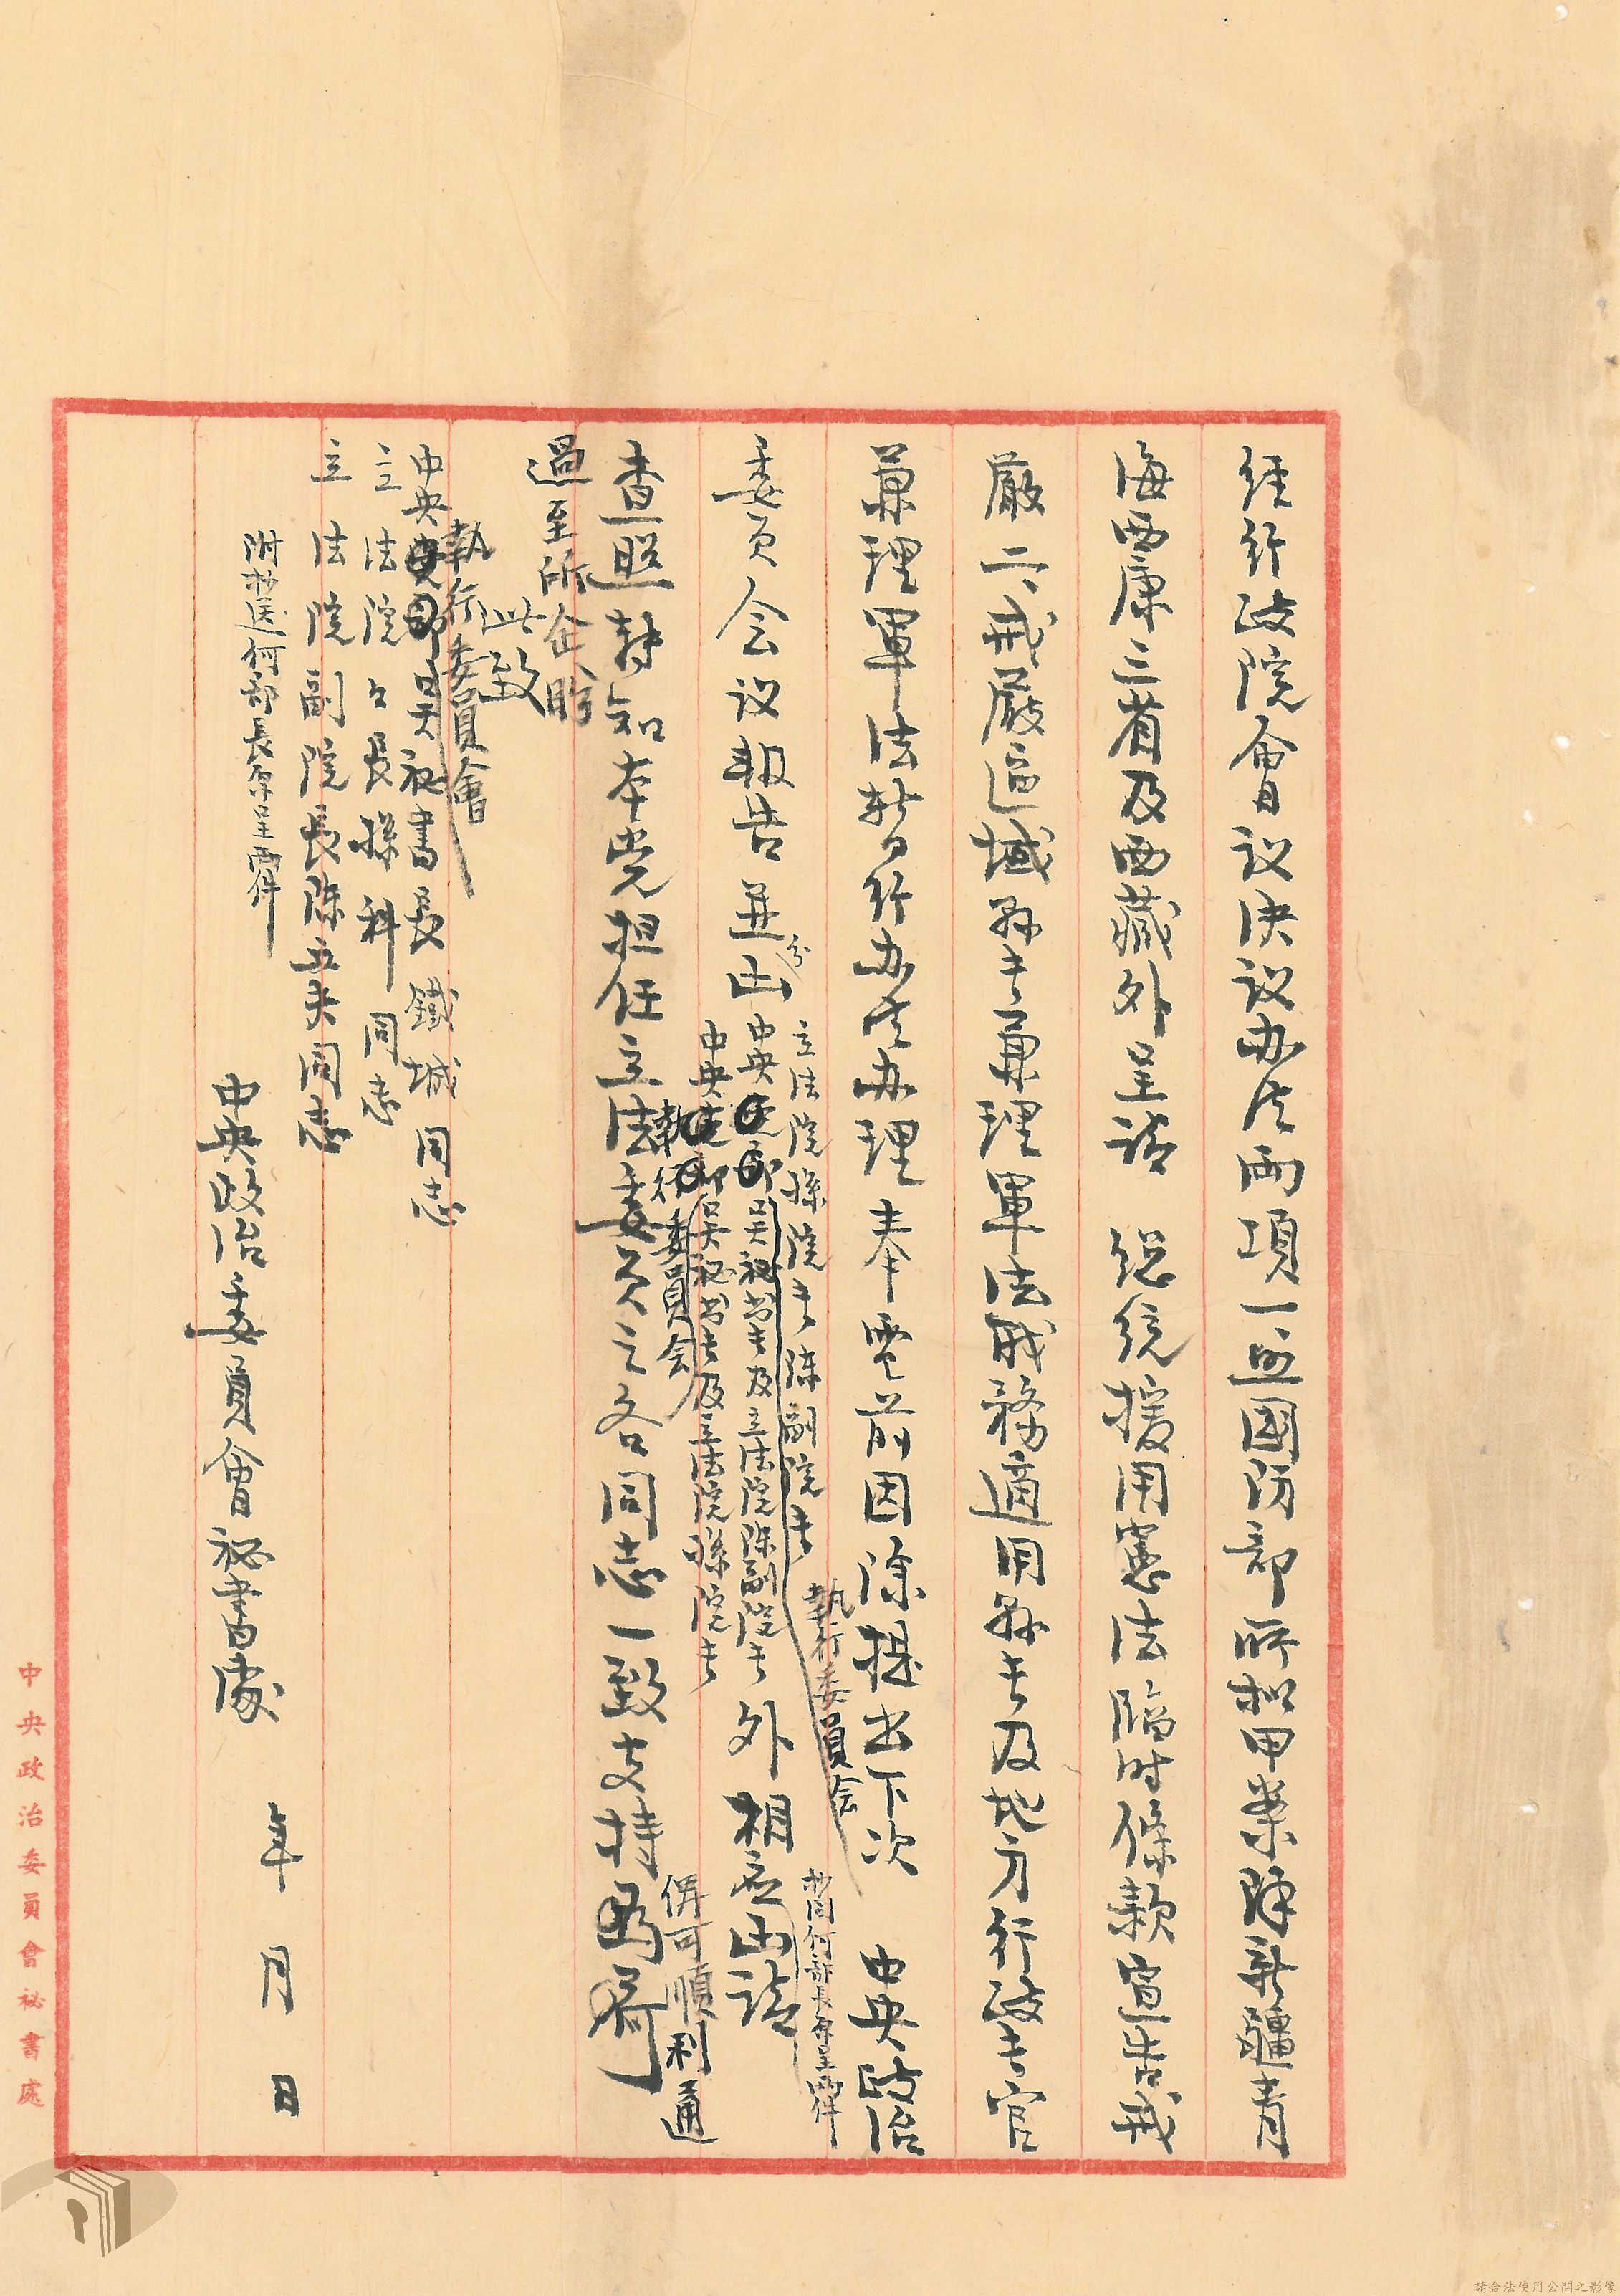 經行政院會议决议办法两項一並國防部所拟甲案除新疆青
海西康三省及西藏外呈请 總统援用憲法臨时條款宣告戒
嚴二、戒嚴區域縣长兼理軍法職務適用縣长及地方行政长官
兼理軍法暫行办法办理奉電前因除提出下次 中央政治
委员会议報告並分函
立法院孫院长陳副院长
中央吴秘书长及立法院陳副院长
中央吴秘书长及立法院孫院长
執行委員会
執行委員会
外相應函請
抄同何部長原呈两件
查照转知本党担任立法委员之各同志一致支持
俾可順利通
過至所企盼
此致
執行委員會
中央吴秘書長鐵城同志
立法院院長孫科同志
立法院副院長陳立夫同志
附抄送何部長原呈两件
中央政治委員會秘書處
年 月 日
中央政治委員會秘書處
請合法使用公開之影像